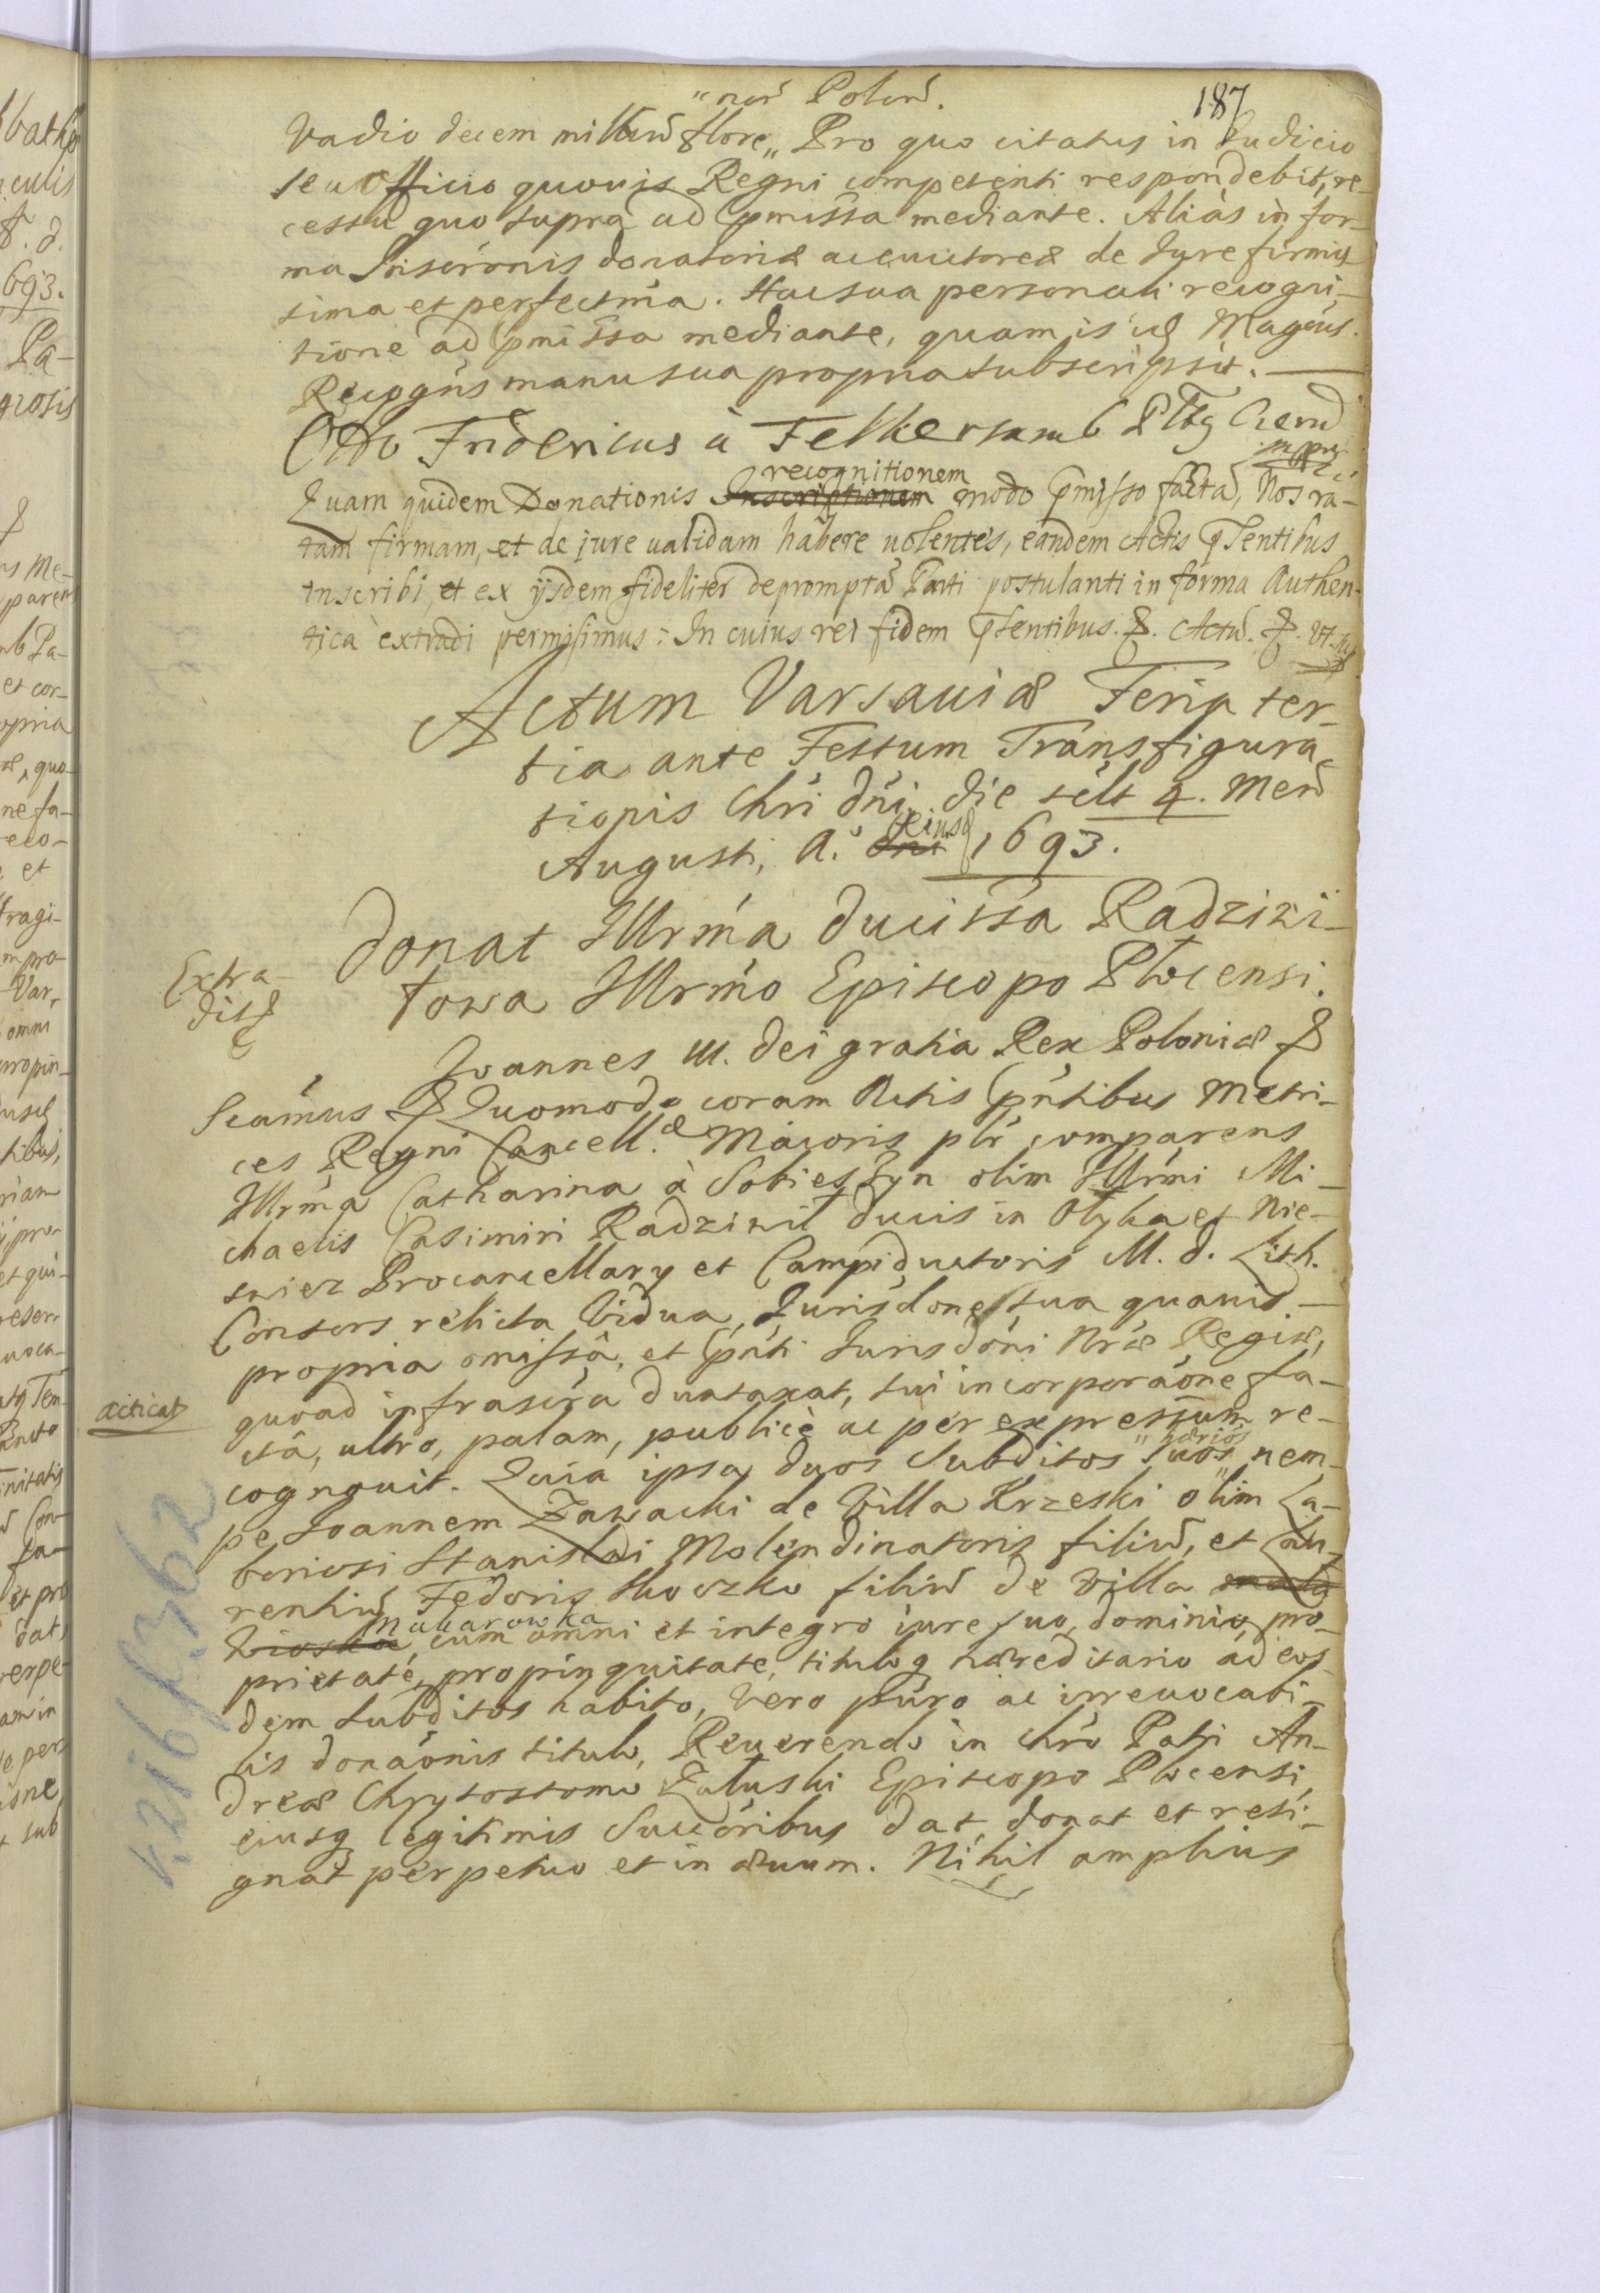 187
"norū Polonū.
Vadio decem milliuū flore„ Pro quo citatus in Iudicio
seu Officio quovis Regni competenti respondebit, re-
cessu quo supra ad pmissa mediante. Alias in for-
ma Inscrónis donatoriæ ac evictoreæ de Iure firmis-
sima et perfectma. Hac sua personali recogni-
tione ad pmissa mediante, quam is id Magcus
Recogńs manu sua propria subscripsit.
Otto Fridericus à Felkersamb
recognitionem
Quam quidem Donationis Inscriptionem modo pmisso factā, Nos ra-
tam firmam, et de jure validam habere volentes, eandem Actis pſentibus
inscribi, et ex ijsdem fideliter depromptā Parti postulanti in forma Authen-
tica extradi permisimus: In cuius rei fidem pſentibus. &. Actū. &. vt. sup
Actum Varsaviæ Feria ter-
tia ante Festum Transfigura-
tionis Chri dńi, die scilt 4. Mens
eiusd
Augusti, A.º dni 1693.
Extra-
dit
Donat Illrma ducissa Radziwi-
łowa Illrmo Episcopo Płocensi.
Joannes III. dei gratia Rex Poloniæ &
Scamus & Quomodo coram Actis pntibus Metri-
ces Regni Cancell.æ Maioris plr comparens
Illrma Catharina à Sobieszyn olim Illrmi Mi-
chaelis Casimiri Radziwił ducis in Ołyka et Nie-
swiez Procancellary et Campiductoris M. D. Lith.
Consors relicta Vidua, Iurisdone sua quavis
propria omissâ, et pnti Iurisdoni Nræ Regiæ,
quoad infrascra duntaxat, sui incorporaone fa-
acticat
ctâ, ultro, palam, publicè ac per expressum re-
"hærios
cognovit. Quia ipsa duos Subditos suos" nem-
pe Joannem Zawacki de Villa Krzeski olim La-
boriosi Stanislai Molendinatoris filiū, et Lau-
rentiū Fedoris Skoczko filiū de Villa mala
Makarowka
Wioska cum omni et integro iure suo, dominio, pro-
prietate, propinquitate, tituloq hæreditario ad eos-
dem subditos habito, vero puro ac irrevocabi-
lis donaonis titulo, Reverendo in Chro Patri An-
dreæ Chrysostomo Załuski Episcopo Płocensi,
eiusq legitimis Succoribus dat, donat et resi-
gnat perpetuo et in ævum. Nihil amplius